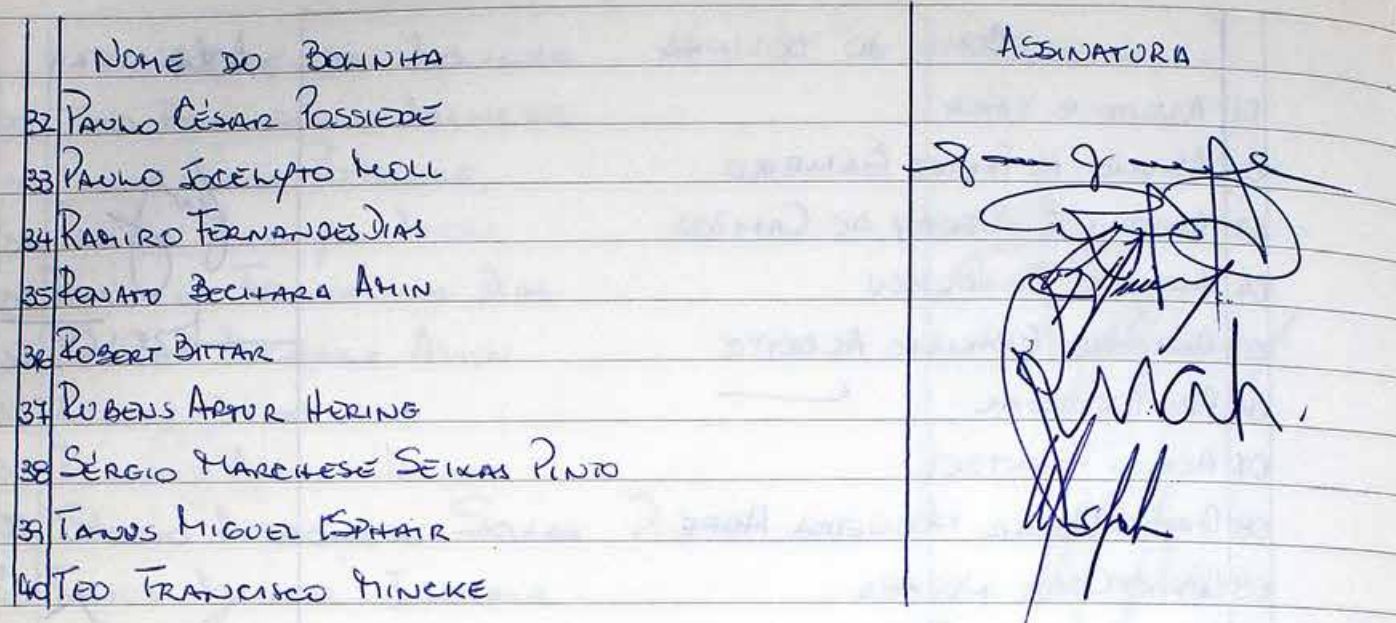 NOME DO BOLINHA ASSINATURA
32 PAULO CÉSAR POSSIEDE
33 PAULO JOCELYTO MOLL
34 RAMIRO FERNANDES DIAS
35 RENATO BECHARA AMIN
36 ROBERT BITTAR
37 RUBENS ARTUR HERING
38 SÉRGIO MARCHESE SEIXAS PINTO
39 TANUS MIGUEL ESPHAIR
40 TEO FRANCISCO MINCKE